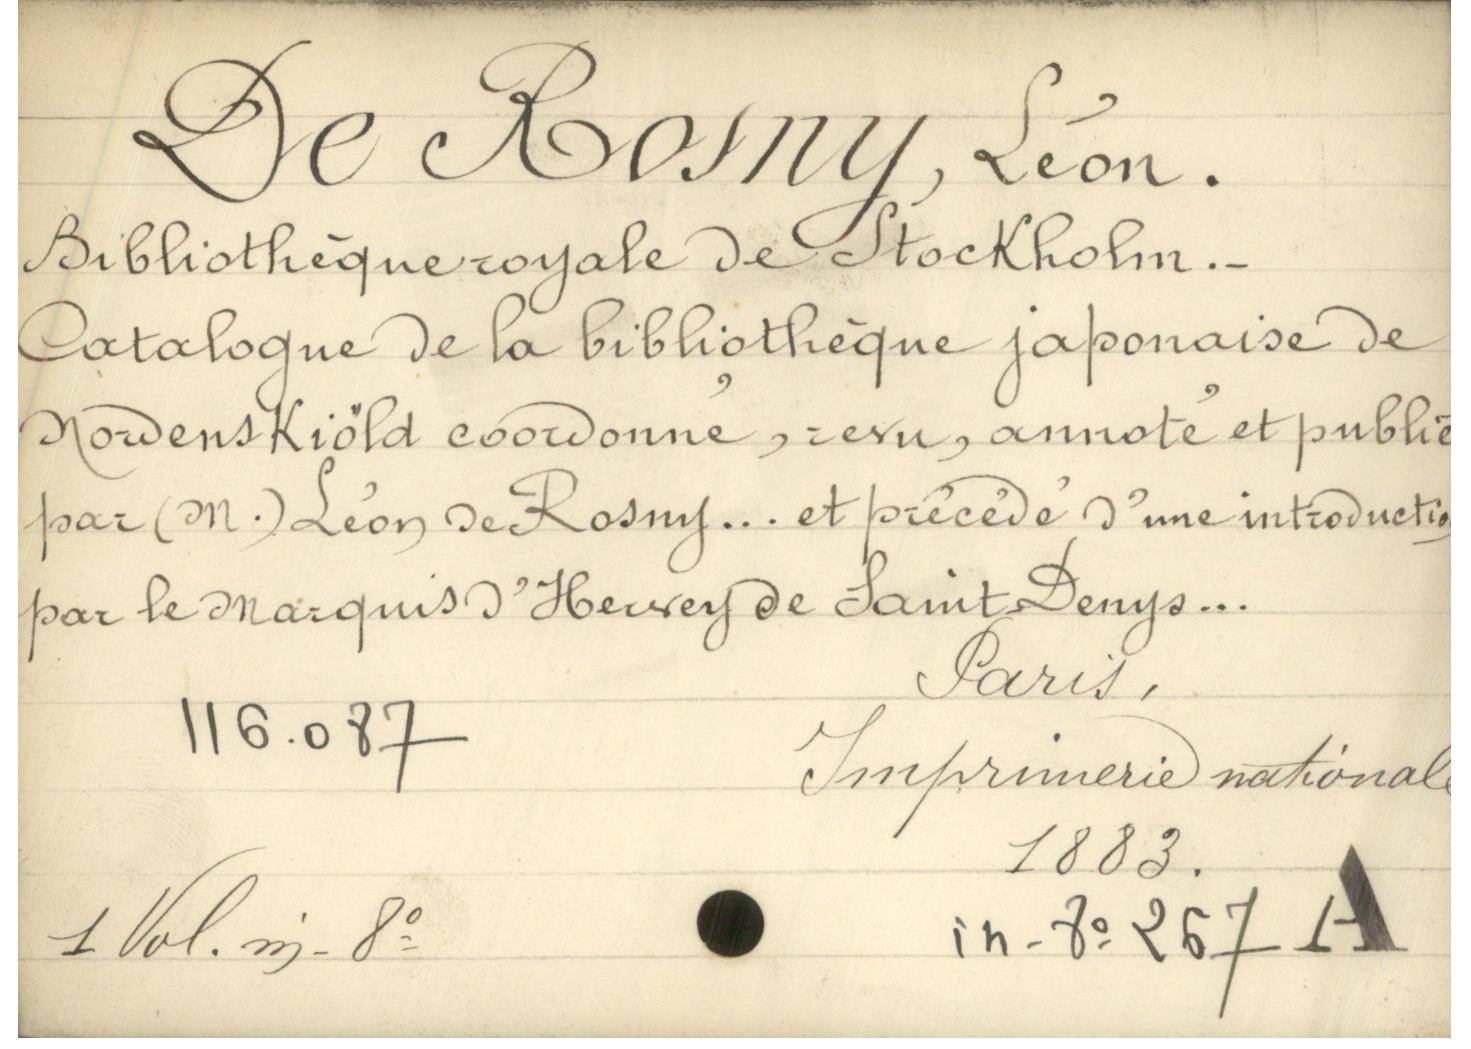 De Rosny, Léon.
Bibliothèque royale de Stockholm.-
Catalogue de la bibliothèque japonaise de
Nordenskiöld coordonné, revu, annoté et publié
par (M.) Léon de Rosny... et précédé d'une introductio
par le Marquis d'Hervey de Saint Denys...
Paris,
116.087
Imprimerie nationale
1883.
1 Vol. in-8º
in-8º 267 A